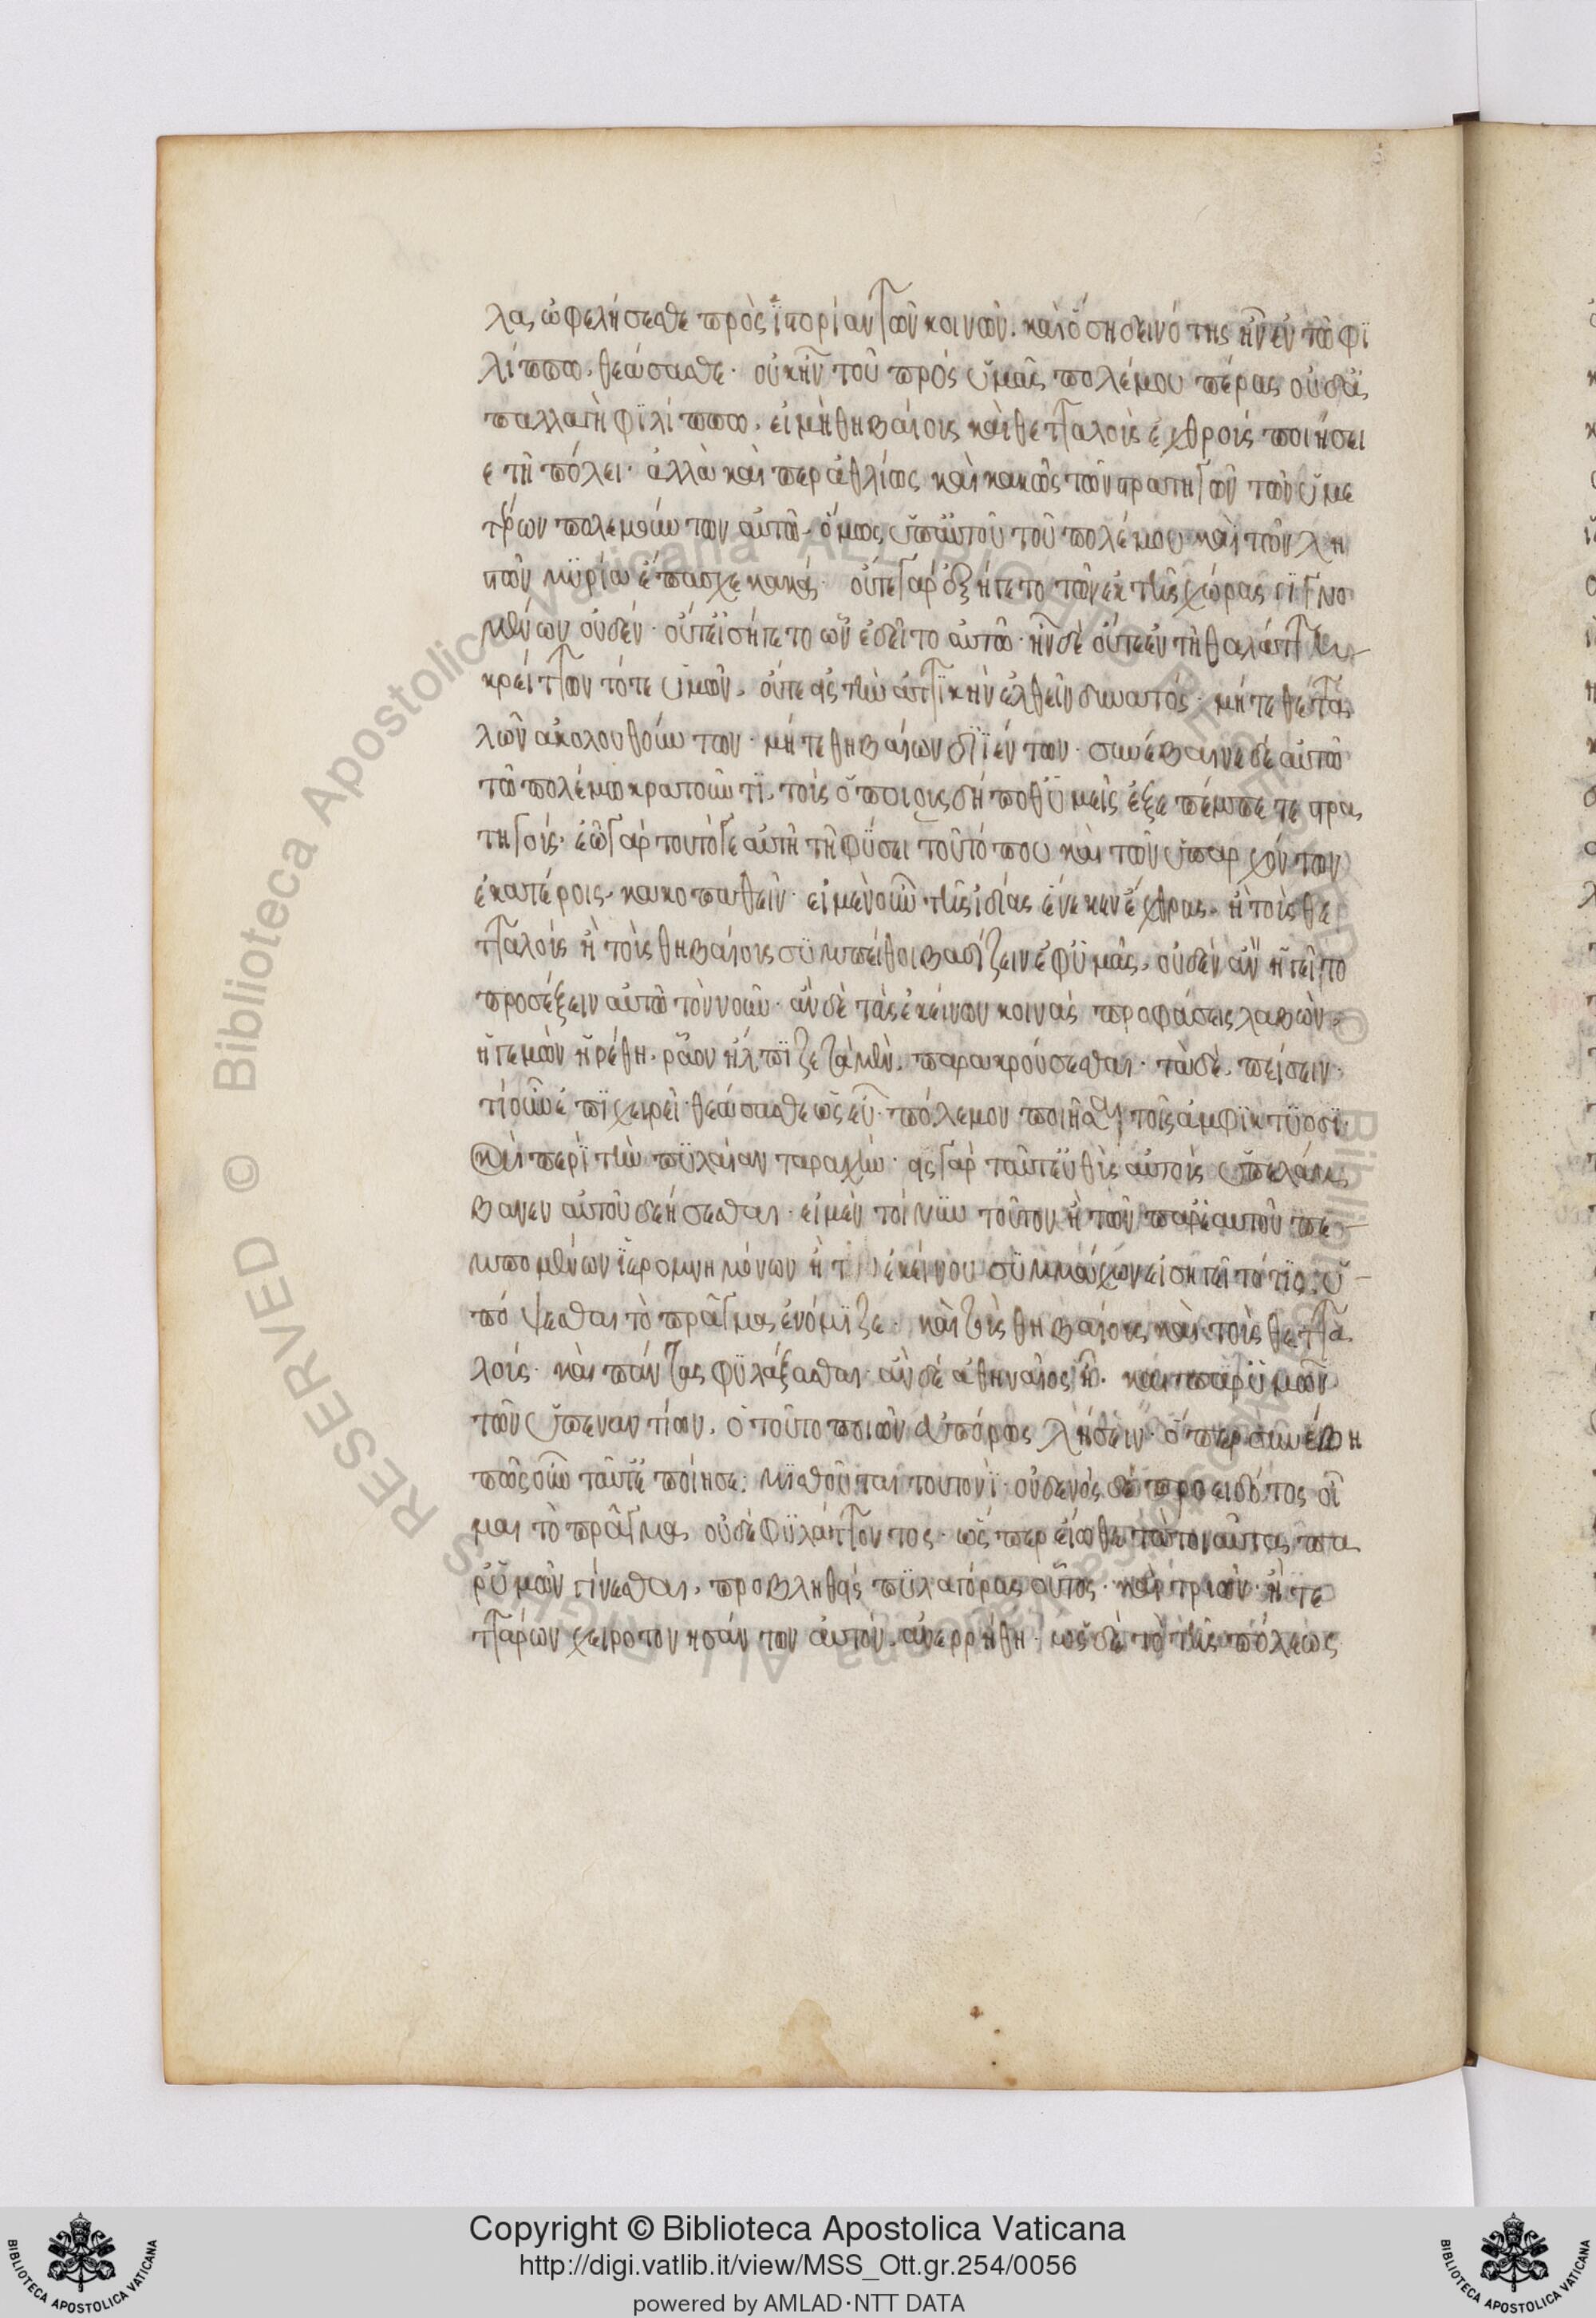 λας ὠφελήσεσθε πρὸς ἱστορίαν τῶν κοινῶν. καὶ ὅση δεινότης ἦν ἐν τῶ φι
λίππω, θεάσασθε· οὐκ ἦν τοῦ πρὸς ὑμᾶς πολέμου πέρας οὐδ' ἀ
παλλαγὴ φιλίππω, εἰ μὴ θηβαίους καὶ θετταλοὺς ἐχθροὺς ποιήσει
ε τῆ πόλει· ἀλλὰ καίπερ ἀθλίως καὶ κακῶς τῶν στρατηγῶν τῶν ὑμε
τέρων πολεμούντων αὐτῶ. ὅμως ὑπ' αὐτοῦ τοῦ πολέμου καὶ τῶν λη
στῶν μυρία ἔπασχε κακά· οὔτε γὰρ ἐξήγετο τῶν ἐκ τῆς χώρας γιγνο
μένων οὐδέν· οὔτ' εἰσήγετο ὧν ἐδεῖτο αὐτῶ· ἦν δὲ οὔτε ἐν τῆ θαλάττη
κρείττων τότε ὑμῶν, οὔτε εἰς τὴν ἀττικὴν ἐλθεῖν δυνατός· μήτε θεττα
λῶν ἀκολουθούντων· μήτε θηβαίων διϊέντων· συνέβαινε δὲ αὐτῶ
τῶ πολέμω κρατοῦντι, τοὺς ὁποίους δήποθ' ὑμεῖς ἐξεπέμπετε στρα
τηγούς· ἐῶ γὰρ τοῦτό γε αὐτῆ τῆ φύσει τοῦ τόπου καὶ τῶν ὑπαρχόντων
ἑκατέροις, κακοπαθεῖν· εἰ μὲν οὖν τῆς ἰδίας ἕνεκεν ἔχθρας, ἢ τοὺς θε
τταλοὺς ἢ τοὺς θηβαίους συμπείθοι βαδίζειν ἐφ' ὑμᾶς, οὐδέν' ἂν ἡγεῖτο
προσέξειν αὐτῶ τὸν νοῦν· ἂν δὲ τὰς ἐκείνων κοινὰς προφάσεις λαβὼν,
ἡγεμὼν ἡρέθη. ῥᾶον ἤλπιζε τὰ μὲν, παρακρούσεσθαι· τὰ δὲ, πείσειν·
τί οὖν ἐπιχειρεῖ· θεάσασθε ὡς εὖ· πόλεμον ποιῆσαι τοῖς ἀμφικτύοσι·
καὶ περὶ τὴν πυλαίαν ταραχήν· εἰς γὰρ ταῦτ' εὐθὺς αὐτοὺς ὑπελάμ
βανεν αὐτοῦ δεήσεσθαι· εἰ μὲν τοίνυν τοῦτον ἢ τῶν παρ' ἑαυτοῦ πε
μπομένων ἱερομνημόνων ἢ τῶν ἐκείνου συμμάχων εἰσηγεῖτό τις, ὑ
πόψεσθαι τὸ πρᾶγμα ἐνόμιζε· καὶ τοὺς θηβαίους καὶ τοὺς θεττα
λούς· καὶ πάντας φυλάξασθαι· ἂν δὲ ἀθηναῖος ἦ. καὶ παρ' ὑμῶν
τῶν ὑπεναντίων, ὁ τοῦτο ποιῶν εὐπόρως λήσειν· ὅπερ συνέβη
πῶς οὖν ταῦτ' ἐποίησε· μισθοῦται τουτονί· οὐδενὸς δὲ προειδότος οἶ
μαι τὸ πρᾶγμα οὐδὲ φυλάττοντος· ὥσπερ εἴωθε τὰ τοιαῦτα πα
ρ' ὑμῶν γίνεσθαι, προβληθεὶς πυλαγόρας οὗτος· καὶ τριῶν ἢ τε
ττάρων χειροτονησάντων αὐτὸν, ἀνερρήθη· ὡς δὲ τὸ τῆς πόλεως
Copyright © Biblioteca Apostolica Vaticana
http://digi.vatlib.it/view/MSS_Ott.gr.254/0056
powered by AMLAD·NTT DATA